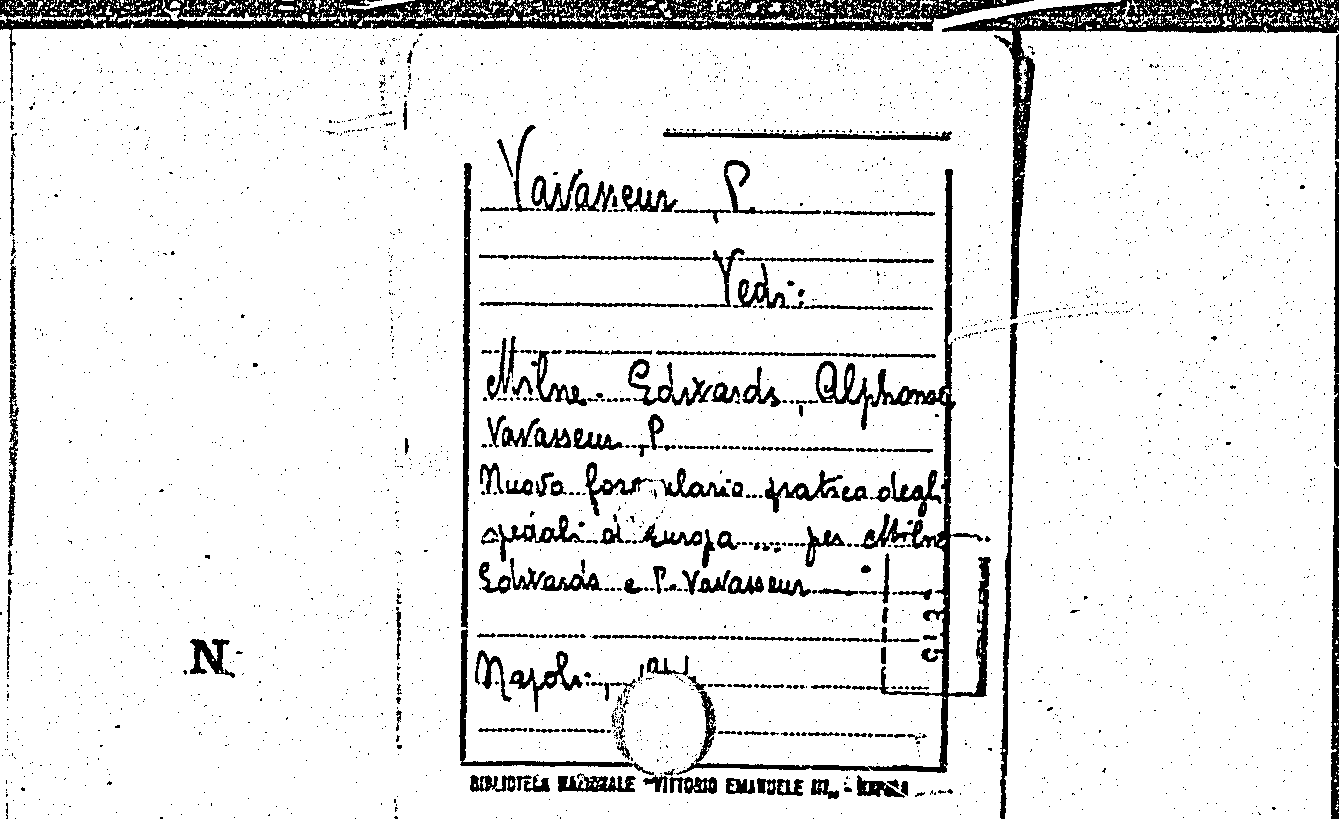 Vavasseur, P.
Vedi:
Milne-Edwards, Alphonse
Vavasseur, P.
Nuovo formulario pratico degli
speciali d'Europa ... per Milne
Edwards e P. Vavasseur
Napoli,
BIBLIOTECA NAZIONALE "VITTORIO EMANUELE III" - NAPOLI
N